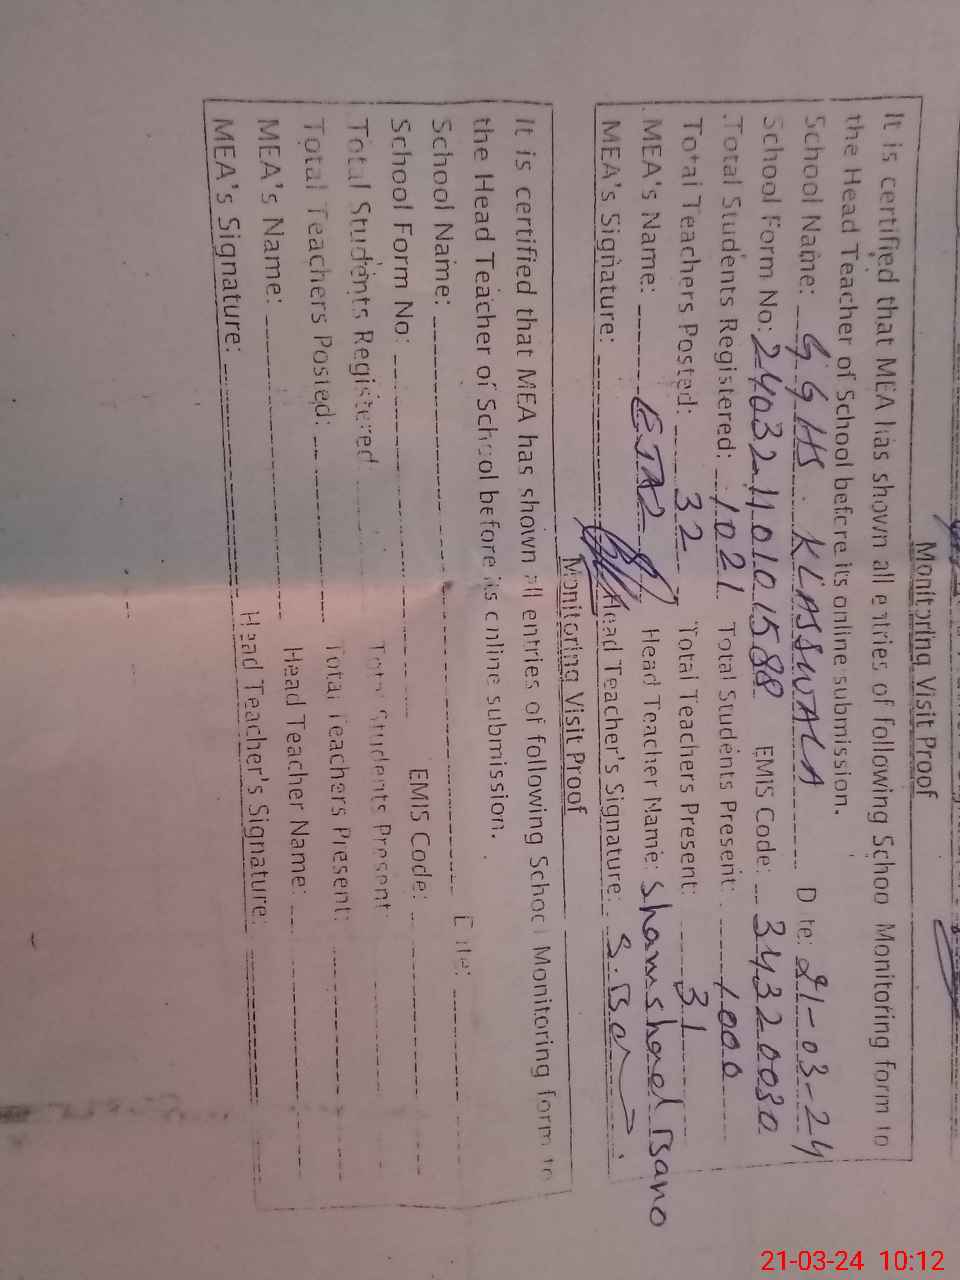 Monitoring Visit Proof
It is certified that MEA has shown all entries of following School Monitoring form to
the Head Teacher of School before its online submission.
School Name: GGHS. KLASSWALA Date: 21-03-24
School Form No: 2403240101588 EMIS Code: 34320030
Total Students Registered: 1021 Total Students Present: 1000
Total Teachers Posted: 32 Total Teachers Present: 31
MEA's Name: Head Teacher Name: Shamshad Bano
MEA's Signature: Head Teacher's Signature: S.Bano
Monitoring Visit Proof
It is certified that MEA has shown all entries of following School Monitoring form to
the Head Teacher of School before its online submission.
School Name: Date:
School Form No: EMIS Code:
Total Students Registered Total Students Present
Total Teachers Posted: Total Teachers Present:
MEA's Name: Head Teacher Name:
MEA's Signature: Head Teacher's Signature:
21-03-24 10:12